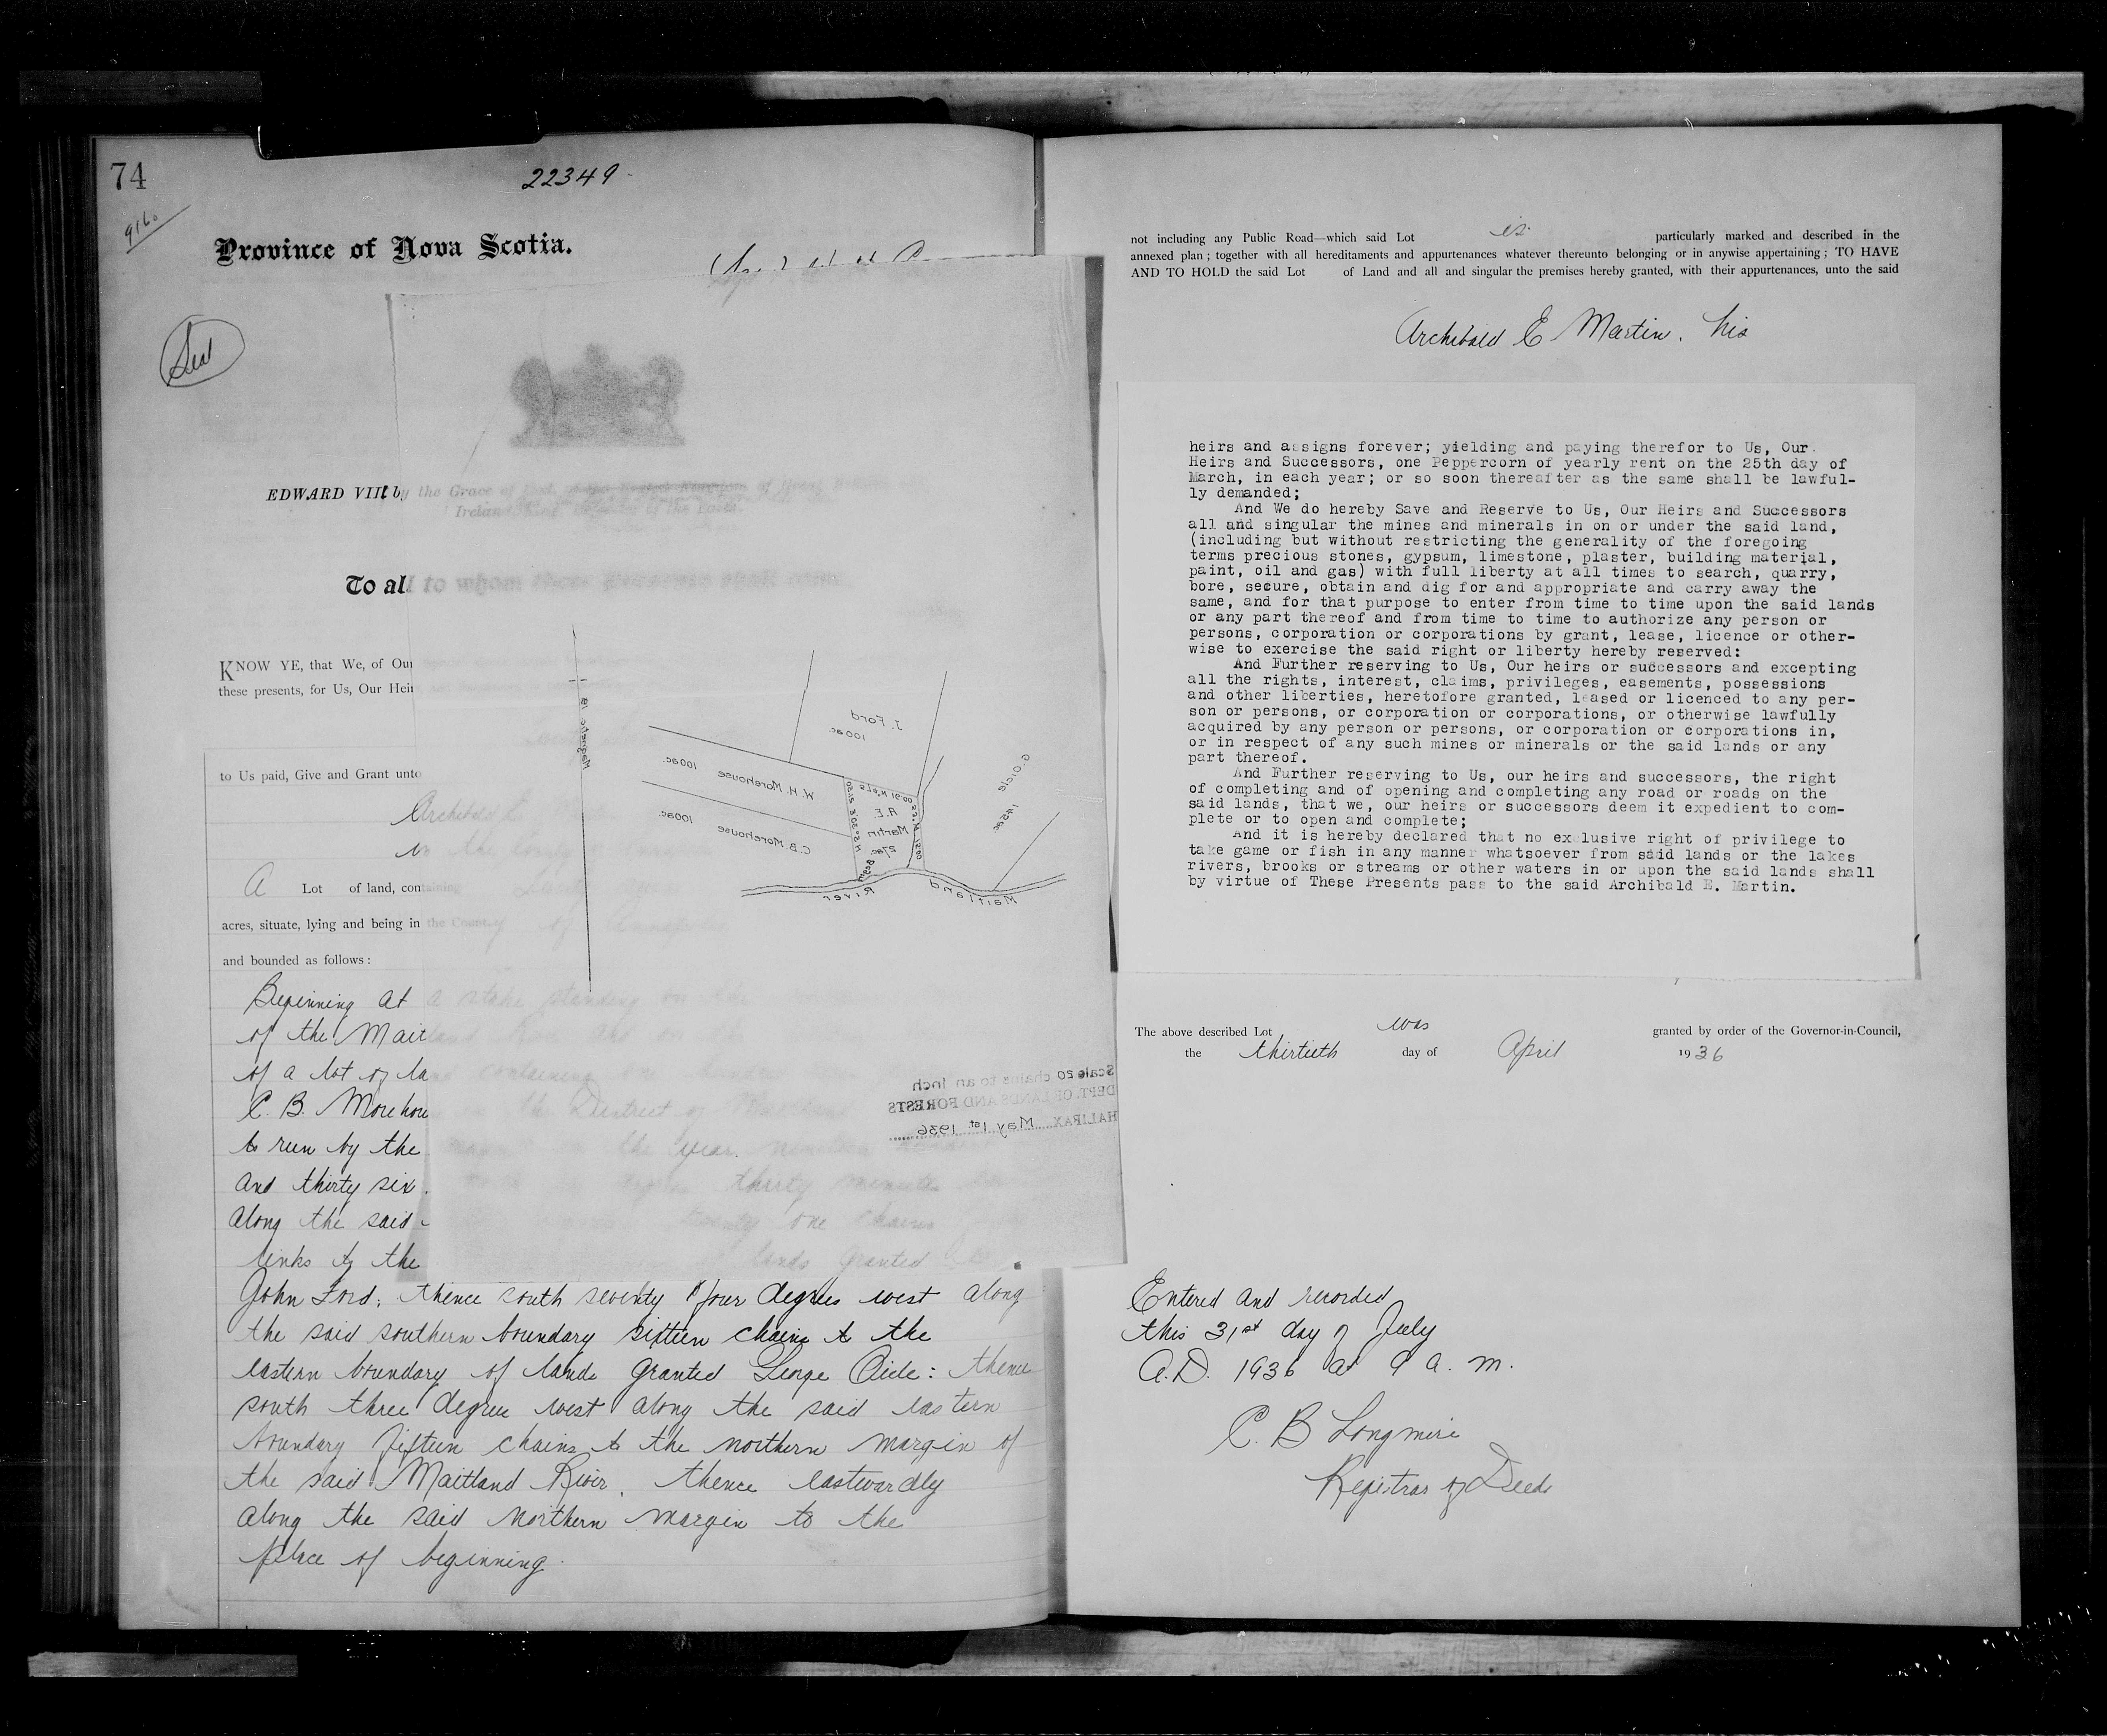 74
22349
Province of Nova Scotia.
Seal
EDWARD VIII by the Grace of God,
Ireland
To all to whom these Presents shall come
KNOW YE, that We, of Our
these presents, for Us, Our Heir
to Us paid, Give and Grant unto
Archibald E.
in the County
A Lot of land, containing
acres, situate, lying and being in the County of Annapolis
and bounded as follows:
Beginning at a stake standing on the
of the Maitland River and on the
of a lot of land containing one hundred
C. B. Morehouse in the District of
to run by the magnet in the year nineteen
and thirty six. thirty minutes
along the said twenty one chains
links to the lands granted
John Ford; thence south seventy four degrees west along
the said southern boundary sixteen chains to the
eastern boundary of lands granted George Oicle: thence
south three degrees west along the said eastern
boundary fifteen chains to the northern margin of
the said Maitland River, thence eastwardly
along the said northern margin to the
place of beginning.
Magnetic 1936
J. Ford
100ac
G. Oicle
W. H. Morehouse 100ac.
C.B. Morehouse 100ac.
A.E.
Martin
27ac.
Maitland River
Scale 20 chains to an inch
DEPT. OF LANDS AND FORESTS
HALIFAX May 1st 1936
not including any Public Road—which said Lot is particularly marked and described in the
annexed plan; together with all hereditaments and appurtenances whatever thereunto belonging or in anywise appertaining; TO HAVE
AND TO HOLD the said Lot of Land and all and singular the premises hereby granted, with their appurtenances, unto the said
Archibald E Martin, his
heirs and assigns forever; yielding and paying therefor to Us, Our
Heirs and Successors, one Peppercorn of yearly rent on the 25th day of
March, in each year; or so soon thereafter as the same shall be lawful-
ly demanded;
And We do hereby Save and Reserve to Us, Our Heirs and Successors
all and singular the mines and minerals in on or under the said land,
(including but without restricting the generality of the foregoing
terms precious stones, gypsum, limestone, plaster, building material,
paint, oil and gas) with full liberty at all times to search, quarry,
bore, secure, obtain and dig for and appropriate and carry away the
same, and for that purpose to enter from time to time upon the said lands
or any part thereof and from time to time to authorize any person or
persons, corporation or corporations by grant, lease, licence or other-
wise to exercise the said right or liberty hereby reserved:
And Further reserving to Us, Our heirs or successors and excepting
all the rights, interest, claims, privileges, easements, possessions
and other liberties, heretofore granted, leased or licenced to any per-
son or persons, or corporation or corporations, or otherwise lawfully
acquired by any person or persons, or corporation or corporations in,
or in respect of any such mines or minerals or the said lands or any
part thereof.
And Further reserving to Us, our heirs and successors, the right
of completing and of opening and completing any road or roads on the
said lands, that we, our heirs or successors deem it expedient to com-
plete or to open and complete;
And it is hereby declared that no exclusive right of privilege to
take game or fish in any manner whatsoever from said lands or the lakes
rivers, brooks or streams or other waters in or upon the said lands shall
by virtue of These Presents pass to the said Archibald E. Martin.
The above described Lot was granted by order of the Governor-in-Council,
the thirtieth day of April 1936
Entered and recorded
this 31st day of July
A.D. 1936 at 9 a. m.
C. B Longmire
Registrar of Deeds